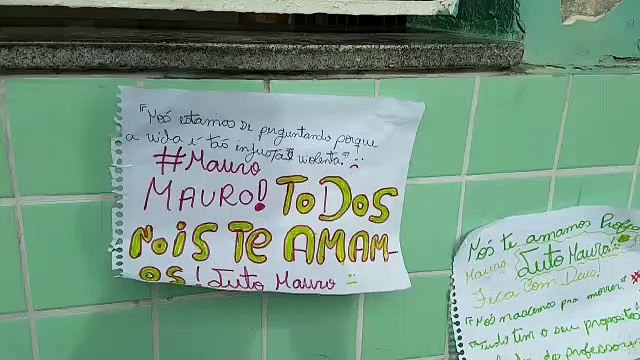 "Nós estamos se perguntando porque
a vida é tão injusta e violenta?" :(
#Mauro
MAURO! TODOS
NOIS TE AMAM-
OS! Luto Mauro
Nós te amamos
Mauro Luto Mauro!
Fica com Deus!
"Nós nascemos pra morrer"
"Tudo tem o seu proposito